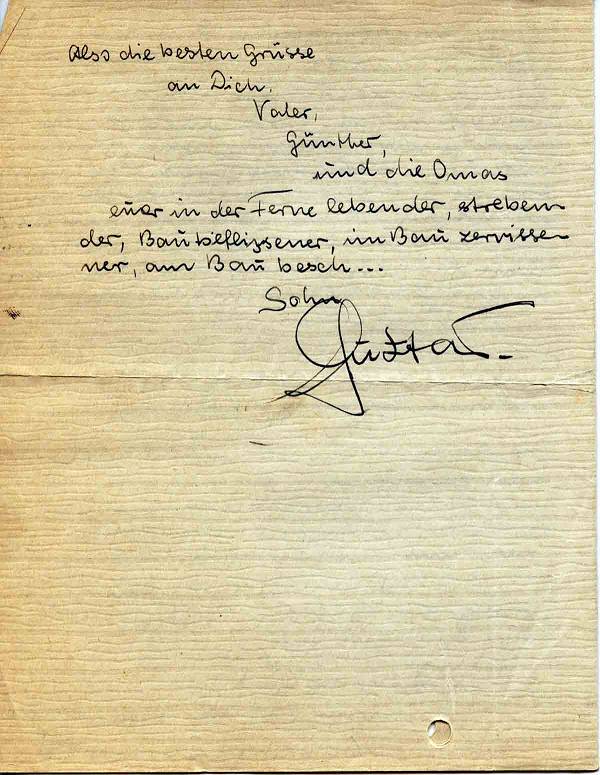 Also die besten Grüsse
an Dich,
Vater,
Günther,
und die Omas
euer in der Ferne lebender, streben-
der, Baubeflissener, im Bau zerrisse-
ner, am Bau besch...
Sohn
Gustav.